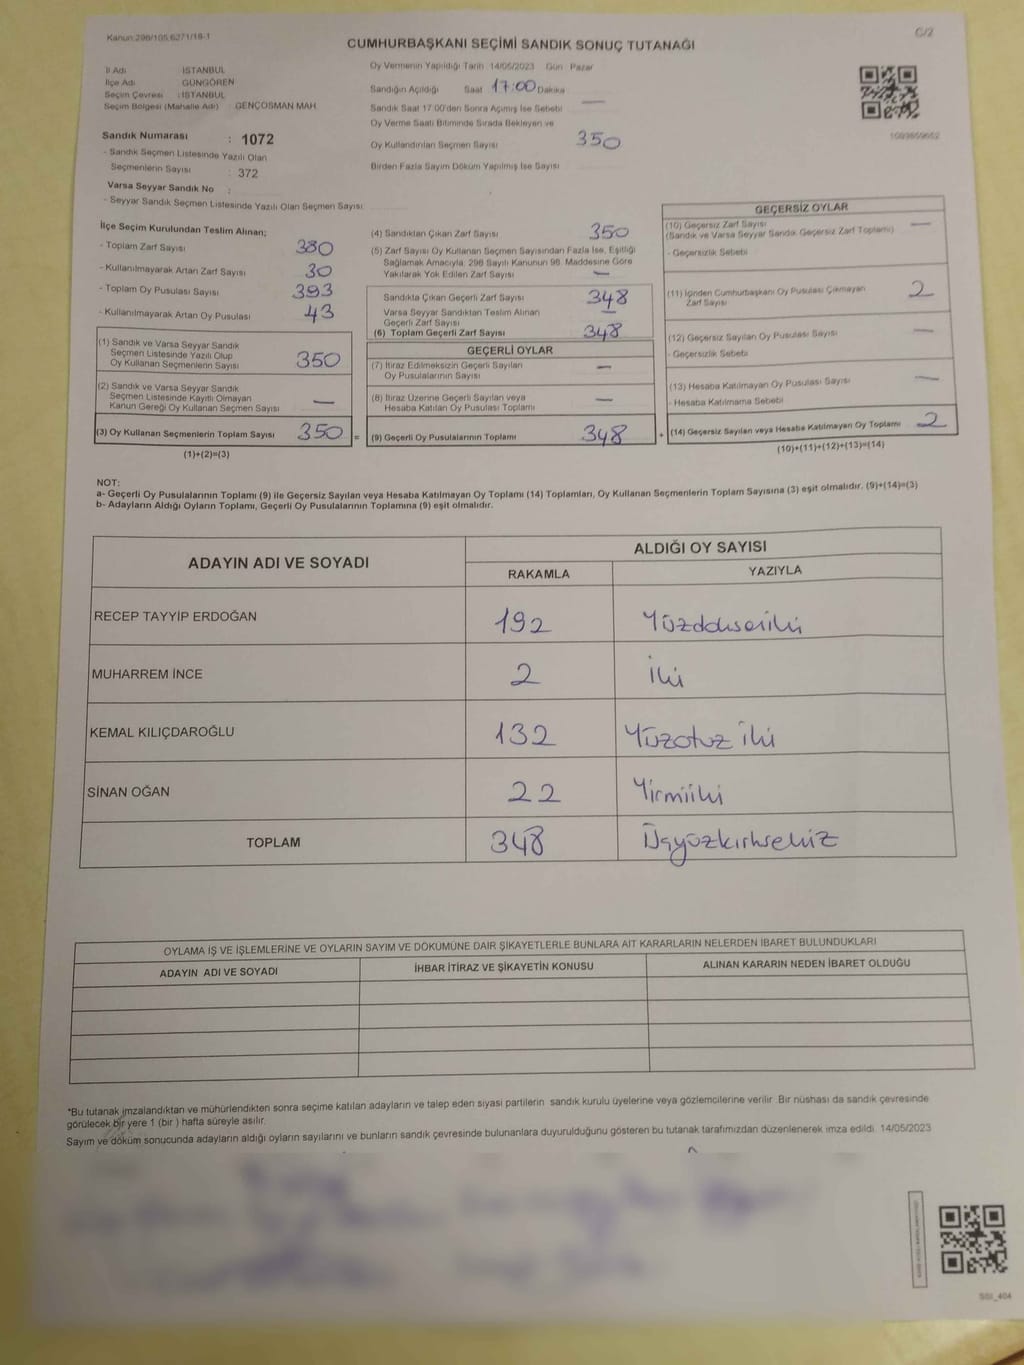 Kanun:298/105,6271/18-1
C/2
CUMHURBAŞKANI SEÇİMİ SANDIK SONUÇ TUTANAĞI
İl Adı : İSTANBUL
İlçe Adı : GÜNGÖREN
Seçim Çevresi : İSTANBUL
Seçim Bölgesi (Mahalle Adı) : GENÇOSMAN MAH.
Sandık Numarası : 1072
- Sandık Seçmen Listesinde Yazılı Olan
Seçmenlerin Sayısı : 372
Varsa Seyyar Sandık No :
- Seyyar Sandık Seçmen Listesinde Yazılı Olan Seçmen Sayısı:
Oy Vermenin Yapıldığı Tarih 14/05/2023 Gün Pazar
Sandığın Açıldığı Saat 17:00 Dakika
Sandık Saat 17:00'den Sonra Açılmış İse Sebebi —
Oy Verme Saati Bitiminde Sırada Bekleyen ve
Oy Kullandırılan Seçmen Sayısı 350
Birden Fazla Sayım Döküm Yapılmış İse Sayısı
İlçe Seçim Kurulundan Teslim Alınan;
- Toplam Zarf Sayısı 380
- Kullanılmayarak Artan Zarf Sayısı 30
- Toplam Oy Pusulası Sayısı 393
- Kullanılmayarak Artan Oy Pusulası 43
(1) Sandık ve Varsa Seyyar Sandık
Seçmen Listesinde Yazılı Olup
Oy Kullanan Seçmenlerin Sayısı 350
(2) Sandık ve Varsa Seyyar Sandık
Seçmen Listesinde Kayıtlı Olmayan
Kanun Gereği Oy Kullanan Seçmen Sayısı —
(3) Oy Kullanan Seçmenlerin Toplam Sayısı 350 =
(1)+(2)=(3)
(4) Sandıktan Çıkan Zarf Sayısı 350
(5) Zarf Sayısı Oy Kullanan Seçmen Sayısından Fazla İse, Eşitliği
Sağlamak Amacıyla, 298 Sayılı Kanunun 98. Maddesine Göre
Yakılarak Yok Edilen Zarf Sayısı —
Sandıkta Çıkan Geçerli Zarf Sayısı 348
Varsa Seyyar Sandıktan Teslim Alınan
Geçerli Zarf Sayısı —
(6) Toplam Geçerli Zarf Sayısı 348
GEÇERLİ OYLAR
(7) İtiraz Edilmeksizin Geçerli Sayılan
Oy Pusulalarının Sayısı —
(8) İtiraz Üzerine Geçerli Sayılan veya
Hesaba Katılan Oy Pusulası Toplamı —
(9) Geçerli Oy Pusulalarının Toplamı 348 +
GEÇERSİZ OYLAR
(10) Geçersiz Zarf Sayısı —
(Sandık ve Varsa Seyyar Sandık Geçersiz Zarf Toplamı)
- Geçersizlik Sebebi
(11) İçinden Cumhurbaşkanı Oy Pusulası Çıkmayan 2
Zarf Sayısı
(12) Geçersiz Sayılan Oy Pusulası Sayısı —
- Geçersizlik Sebebi
(13) Hesaba Katılmayan Oy Pusulası Sayısı —
- Hesaba Katılmama Sebebi
(14) Geçersiz Sayılan veya Hesaba Katılmayan Oy Toplamı 2
(10)+(11)+(12)+(13)=(14)
NOT:
a- Geçerli Oy Pusulalarının Toplamı (9) ile Geçersiz Sayılan veya Hesaba Katılmayan Oy Toplamı (14) Toplamları, Oy Kullanan Seçmenlerin Toplam Sayısına (3) eşit olmalıdır. (9)+(14)=(3)
b- Adayların Aldığı Oyların Toplamı, Geçerli Oy Pusulalarının Toplamına (9) eşit olmalıdır.
ADAYIN ADI VE SOYADI
ALDIĞI OY SAYISI
RAKAMLA YAZIYLA
RECEP TAYYİP ERDOĞAN 192 Yüzdoksaniki
MUHARREM İNCE 2 iki
KEMAL KILIÇDAROĞLU 132 Yüzotuz iki
SİNAN OĞAN 22 Yirmiiki
TOPLAM 348 Üçyüzkırksekiz
OYLAMA İŞ VE İŞLEMLERİNE VE OYLARIN SAYIM VE DÖKÜMÜNE DAİR ŞİKAYETLERLE BUNLARA AİT KARARLARIN NELERDEN İBARET BULUNDUKLARI
ADAYIN ADI VE SOYADI İHBAR İTİRAZ VE ŞİKAYETİN KONUSU ALINAN KARARIN NEDEN İBARET OLDUĞU
*Bu tutanak imzalandıktan ve mühürlendikten sonra seçime katılan adayların ve talep eden siyasi partilerin sandık kurulu üyelerine veya gözlemcilerine verilir. Bir nüshası da sandık çevresinde
görülecek bir yere 1 (bir ) hafta süreyle asılır.
Sayım ve döküm sonucunda adayların aldığı oyların sayılarını ve bunların sandık çevresinde bulunanlara duyurulduğunu gösteren bu tutanak tarafımızdan düzenlenerek imza edildi. 14/05/2023
SSI_404